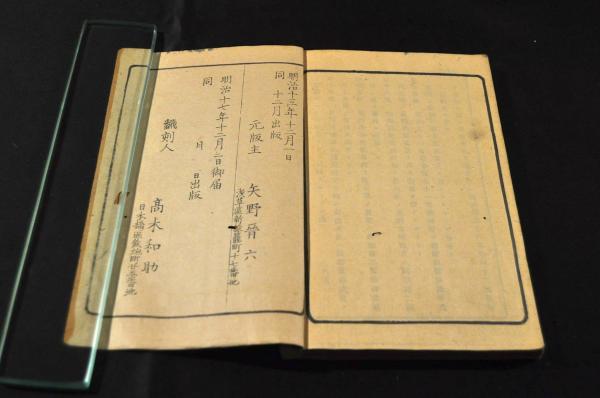 明治十三年十二月一日
同　十二月出版
元版主　矢野晋六
浅草區新谷町十七番地
明治十七年十二月二日御届
同　月　日出版
飜刻人　高木和助
日本橋區